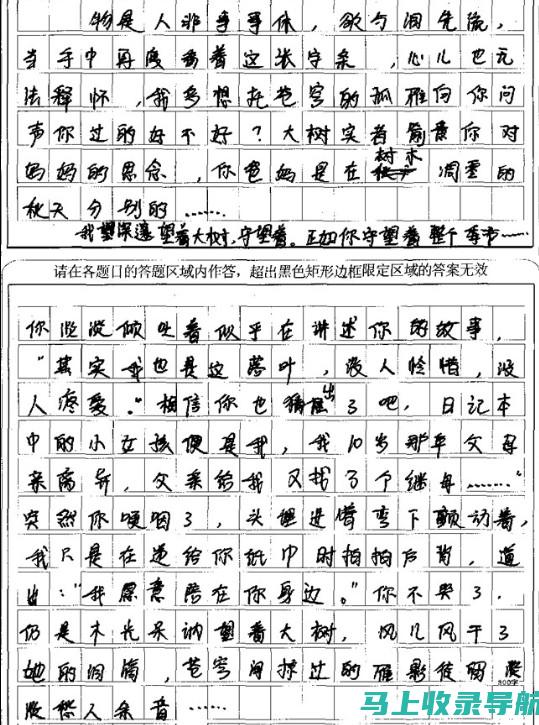 物是人非事事休，欲与泪先流，
当手中再度看着这张字条，心儿也无
法释怀，我多想托苍穹的孤雁向你问
声你过的好不好？大树实者简意你对
妈妈的思念，你爸妈是在树木凋零的
秋天分别的……
我望深邃望着大树，守望着。正如你守望着整个季节……
请在各题口的答题区域内作答，超出黑色矩形边框限定区域的答案无效
你淡淡倾吐着似乎在讲述你的故事，
“其实我也是这落叶，没人怜惜，没
人疼爱。”相信你也猜出了吧，日记本
中的小女孩便是我，我10岁那年父母
亲离异，父亲给我又找了个继母……”
突然你哽咽了，头埋进臂弯下颤动着，
我只是在递给你纸巾时拍拍后背，道
出：“我愿意陪在你身边。”你不哭了，
仍是木光呆讷望着大树，风儿风干了
她的泪痕，苍穹间掠过的雁影
没悠人余音……
800字
马上收录导航